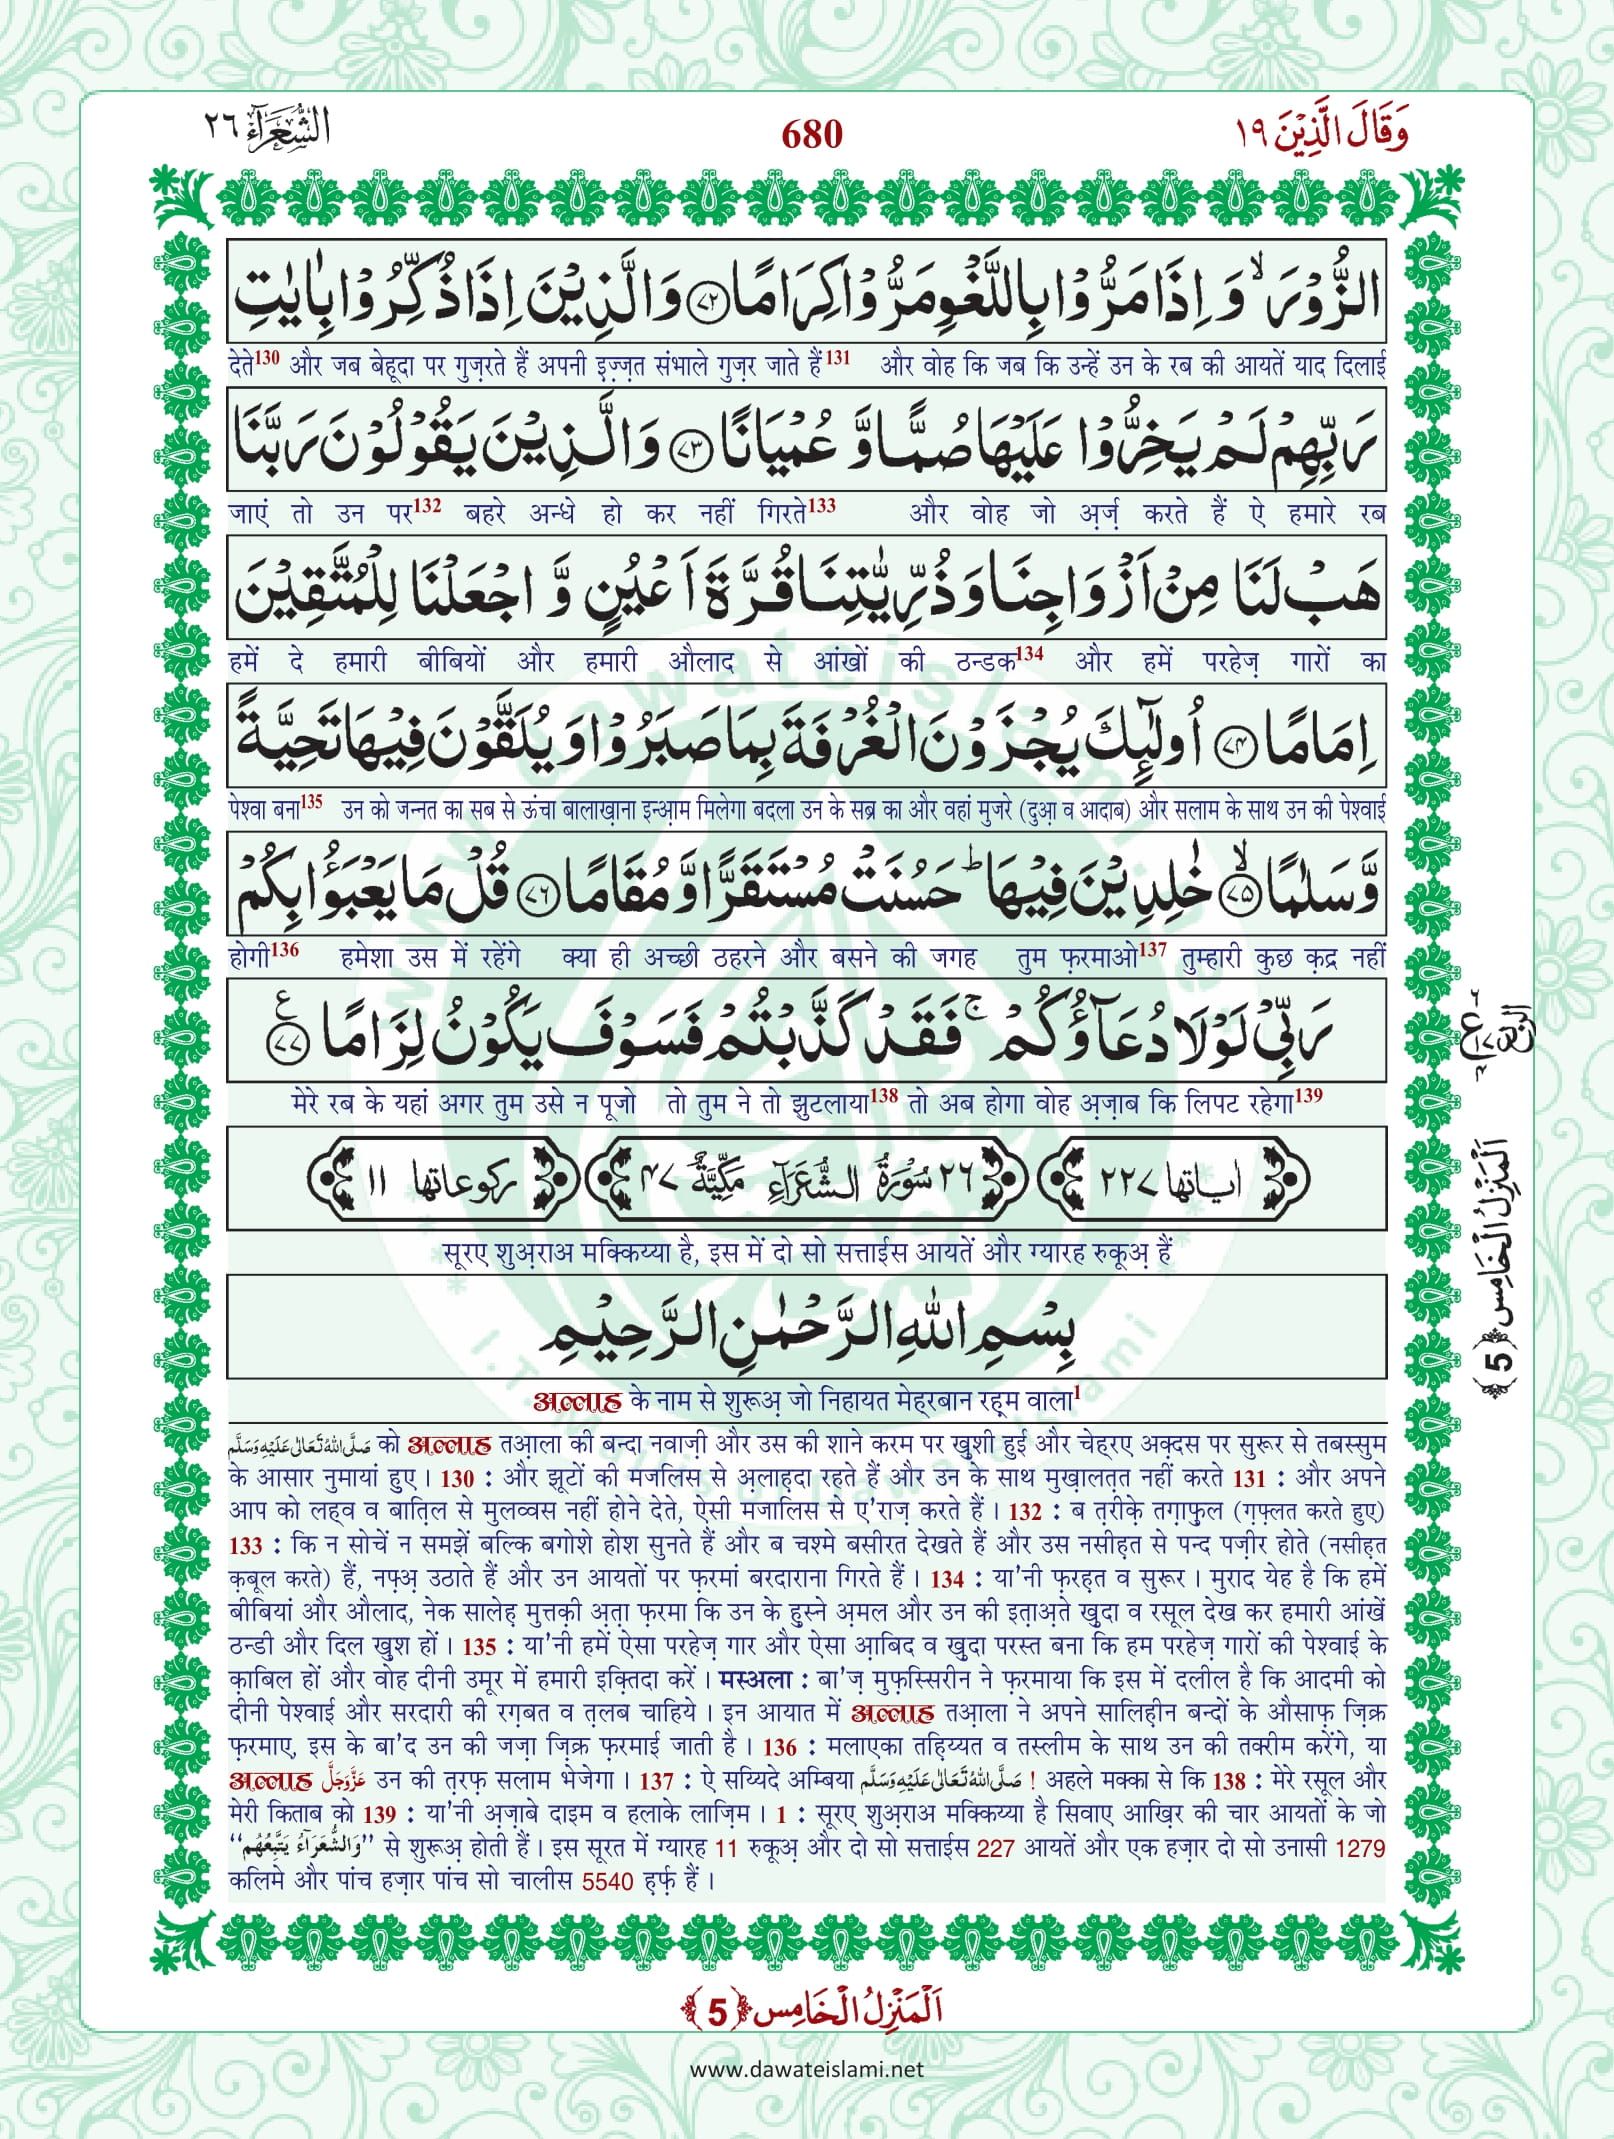 الشُّعَرَآءِ ٢٦
680
وَقَالَ الَّذِيْنَ ١٩
الزُّوْرَ ۙ وَ اِذَا مَرُّوْا بِاللَّغْوِ مَرُّوْا كِرَامًا ﴿٧٢﴾ وَالَّذِيْنَ اِذَا ذُكِّرُوْا بِاٰيٰتِ
देते130 और जब बेहूदा पर गुज़रते हैं अपनी इज़्ज़त संभाले गुज़र जाते हैं131 और वोह कि जब कि उन्हें उन के रब की आयतें याद दिलाई
رَبِّهِمْ لَمْ يَخِرُّوْا عَلَيْهَا صُمًّا وَّ عُمْيَانًا ﴿٧٣﴾ وَالَّذِيْنَ يَقُوْلُوْنَ رَبَّنَا
जाएं तो उन पर132 बहरे अन्धे हो कर नहीं गिरते133 और वोह जो अ़र्ज़ करते हैं ऐ हमारे रब
هَبْ لَنَا مِنْ اَزْوَاجِنَا وَذُرِّيّٰتِنَا قُرَّةَ اَعْيُنٍ وَّ اجْعَلْنَا لِلْمُتَّقِيْنَ
हमें दे हमारी बीबियों और हमारी औलाद से आंखों की ठन्डक134 और हमें परहेज़ गारों का
اِمَامًا ﴿٧٤﴾ اُولٰٓئِكَ يُجْزَوْنَ الْغُرْفَةَ بِمَا صَبَرُوْا وَيُلَقَّوْنَ فِيْهَا تَحِيَّةً
पेश्वा बना135 उन को जन्नत का सब से ऊंचा बालाख़ाना इन्आ़म मिलेगा बदला उन के सब्र का और वहां मुजरे (दुआ़ व आदाब) और सलाम के साथ उन की पेश्वाई
وَّ سَلٰمًا ﴿٧٥﴾ۙ خٰلِدِيْنَ فِيْهَا ؕ حَسُنَتْ مُسْتَقَرًّا وَّ مُقَامًا ﴿٧٦﴾ قُلْ مَا يَعْبَؤُا بِكُمْ
होगी136 हमेशा उस में रहेंगे क्या ही अच्छी ठहरने और बसने की जगह तुम फ़रमाओ137 तुम्हारी कुछ क़द्र नहीं
رَبِّيْ لَوْلَا دُعَآؤُكُمْ ۚ فَقَدْ كَذَّبْتُمْ فَسَوْفَ يَكُوْنُ لِزَامًا ﴿٧٧﴾ ع
मेरे रब के यहां अगर तुम उसे न पूजो तो तुम ने तो झुटलाया138 तो अब होगा वोह अ़ज़ाब कि लिपट रहेगा139
اٰياتها ٢٢٧ ٢٦ سُوْرَةُ الشُّعَرَآءِ مَكِّيَّةٌ ٤٧ ركوعاتها ١١
सूरए शुअ़राअ मक्किय्या है, इस में दो सो सत्ताईस आयतें और ग्यारह रुकूअ़ हैं
بِسْمِ اللّٰهِ الرَّحْمٰنِ الرَّحِيْمِ
अल्लाह के नाम से शुरूअ़ जो निहायत मेह्रबान रह़्म वाला1
صَلَّى اللهُ تَعَالٰى عَلَيْهِ وَسَلَّم को अल्लाह तआ़ला की बन्दा नवाज़ी और उस की शाने करम पर खुशी हुई और चेह्रए अक़्दस पर सुरूर से तबस्सुम
के आसार नुमायां हुए। 130 : और झूटों की मजलिस से अ़लाह़दा रहते हैं और उन के साथ मुख़ालत़त नहीं करते 131 : और अपने
आप को लह्व व बात़िल से मुलव्वस नहीं होने देते, ऐसी मजालिस से ए'राज़ करते हैं। 132 : ब त़रीक़े तग़ाफ़ुल (ग़फ़्लत करते हुए)
133 : कि न सोचें न समझें बल्कि बगोशे होश सुनते हैं और ब चश्मे बसीरत देखते हैं और उस नसीह़त से पन्द पज़ीर होते (नसीह़त
क़बूल करते) हैं, नफ़्अ़ उठाते हैं और उन आयतों पर फ़रमां बरदाराना गिरते हैं। 134 : या'नी फ़रह़त व सुरूर। मुराद येह है कि हमें
बीबियां और औलाद, नेक सालेह़ मुत्तक़ी अ़त़ा फ़रमा कि उन के हुस्ने अ़मल और उन की इत़ाअ़ते खुदा व रसूल देख कर हमारी आंखें
ठन्डी और दिल खुश हों। 135 : या'नी हमें ऐसा परहेज़ गार और ऐसा आ़बिद व खुदा परस्त बना कि हम परहेज़ गारों की पेश्वाई के
क़ाबिल हों और वोह दीनी उमूर में हमारी इक़्तिदा करें। मस्अला : बा'ज़ मुफ़स्सिरीन ने फ़रमाया कि इस में दलील है कि आदमी को
दीनी पेश्वाई और सरदारी की रग़बत व त़लब चाहिये। इन आयात में अल्लाह तआ़ला ने अपने सालिह़ीन बन्दों के औसाफ़ ज़िक्र
फ़रमाए, इस के बा'द उन की जज़ा ज़िक्र फ़रमाई जाती है। 136 : मलाएका तहि़य्यत व तस्लीम के साथ उन की तक्रीम करेंगे, या
अल्लाह عَزَّوَجَلَّ उन की त़रफ़ सलाम भेजेगा। 137 : ऐ सय्यिदे अम्बिया صَلَّى اللهُ تَعَالٰى عَلَيْهِ وَسَلَّم ! अहले मक्का से कि 138 : मेरे रसूल और
मेरी किताब को 139 : या'नी अ़ज़ाबे दाइम व हलाके लाज़िम। 1 : सूरए शुअ़राअ मक्किय्या है सिवाए आख़िर की चार आयतों के जो
“وَالشُّعَرَآءُ يَتَّبِعُهُم” से शुरूअ़ होती हैं। इस सूरत में ग्यारह 11 रुकूअ़ और दो सो सत्ताईस 227 आयतें और एक हज़ार दो सो उनासी 1279
कलिमे और पांच हज़ार पांच सो चालीस 5540 ह़र्फ़ हैं।
الربع
اَلْمَنْزِلُ الْخَامِس ﴿5﴾
اَلْمَنْزِلُ الْخَامِس ﴿5﴾
www.dawateislami.net